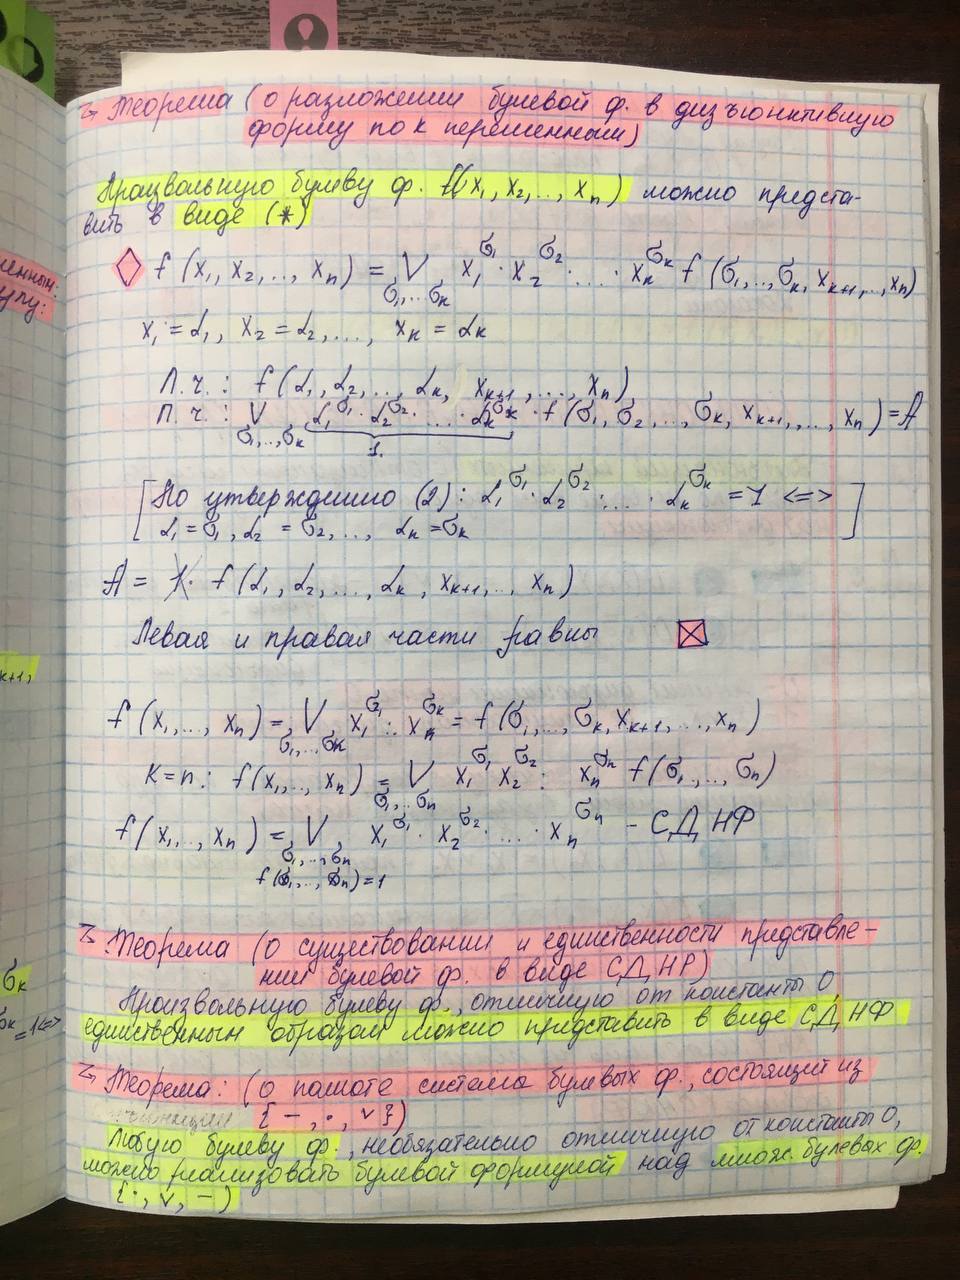 Теорема (о разложении булевой ф. в дизъюнктивную
форму по k переменным)
Произвольную булеву ф. f(x₁, x₂, .., xₙ) можно предста-
вить в виде (*)
f (x₁, x₂, .., xₙ) = V x₁^σ₁ · x₂^σ₂ · ... · xₖ^σₖ f (σ₁, .., σₖ, xₖ₊₁, .., xₙ)
σ₁, .. σₖ
x₁ = α₁, x₂ = α₂, ..., xₖ = αₖ
Л.ч. : f (α₁, α₂, .., αₖ, xₖ₊₁, ..., xₙ)
П.ч. : V α₁^σ₁ · α₂^σ₂ · ... · αₖ^σₖ · f (σ₁, σ₂, ..., σₖ, xₖ₊₁, ..., xₙ) = A
σ₁, .., σₖ
1.
[По утверждению (2) : α₁^σ₁ · α₂^σ₂ · ... · αₖ^σₖ = 1 <=>
α₁ = σ₁, α₂ = σ₂, .., αₖ = σₖ]
A = 1· f (α₁, α₂, ..., αₖ, xₖ₊₁, .., xₙ)
Левая и правая части равны
f (x₁, .., xₙ) = V x₁^σ₁ : xₖ^σₖ = f (σ₁, .., σₖ, xₖ₊₁, .., xₙ)
σ₁, .. σₖ
K = n : f (x₁, .., xₙ) = V x₁^σ₁ x₂^σ₂ : xₙ^σₙ f (σ₁, .., σₙ)
σ₁, .. σₙ
f (x₁, .., xₙ) = V x₁^σ₁ · x₂^σ₂ · ... · xₙ^σₙ - СДНФ
σ₁, .., σₙ
f(σ₁, .., σₙ) = 1
Теорема (о существовании и единственности представле-
нии булевой ф. в виде СДНР)
Произвольную булеву ф., отличную от константы 0
единственным образом можно представить в виде СДНФ
Теорема : (о полноте системы булевых ф., состоящий из
{ –, ·, v })
Любую булеву ф., необязательно отличную от константы 0,
можно реализовать булевой формулой над множ. булевых ф.
{ ·, v, – )
енным:
улу:
k+1,
σₖ
= 1 <=>